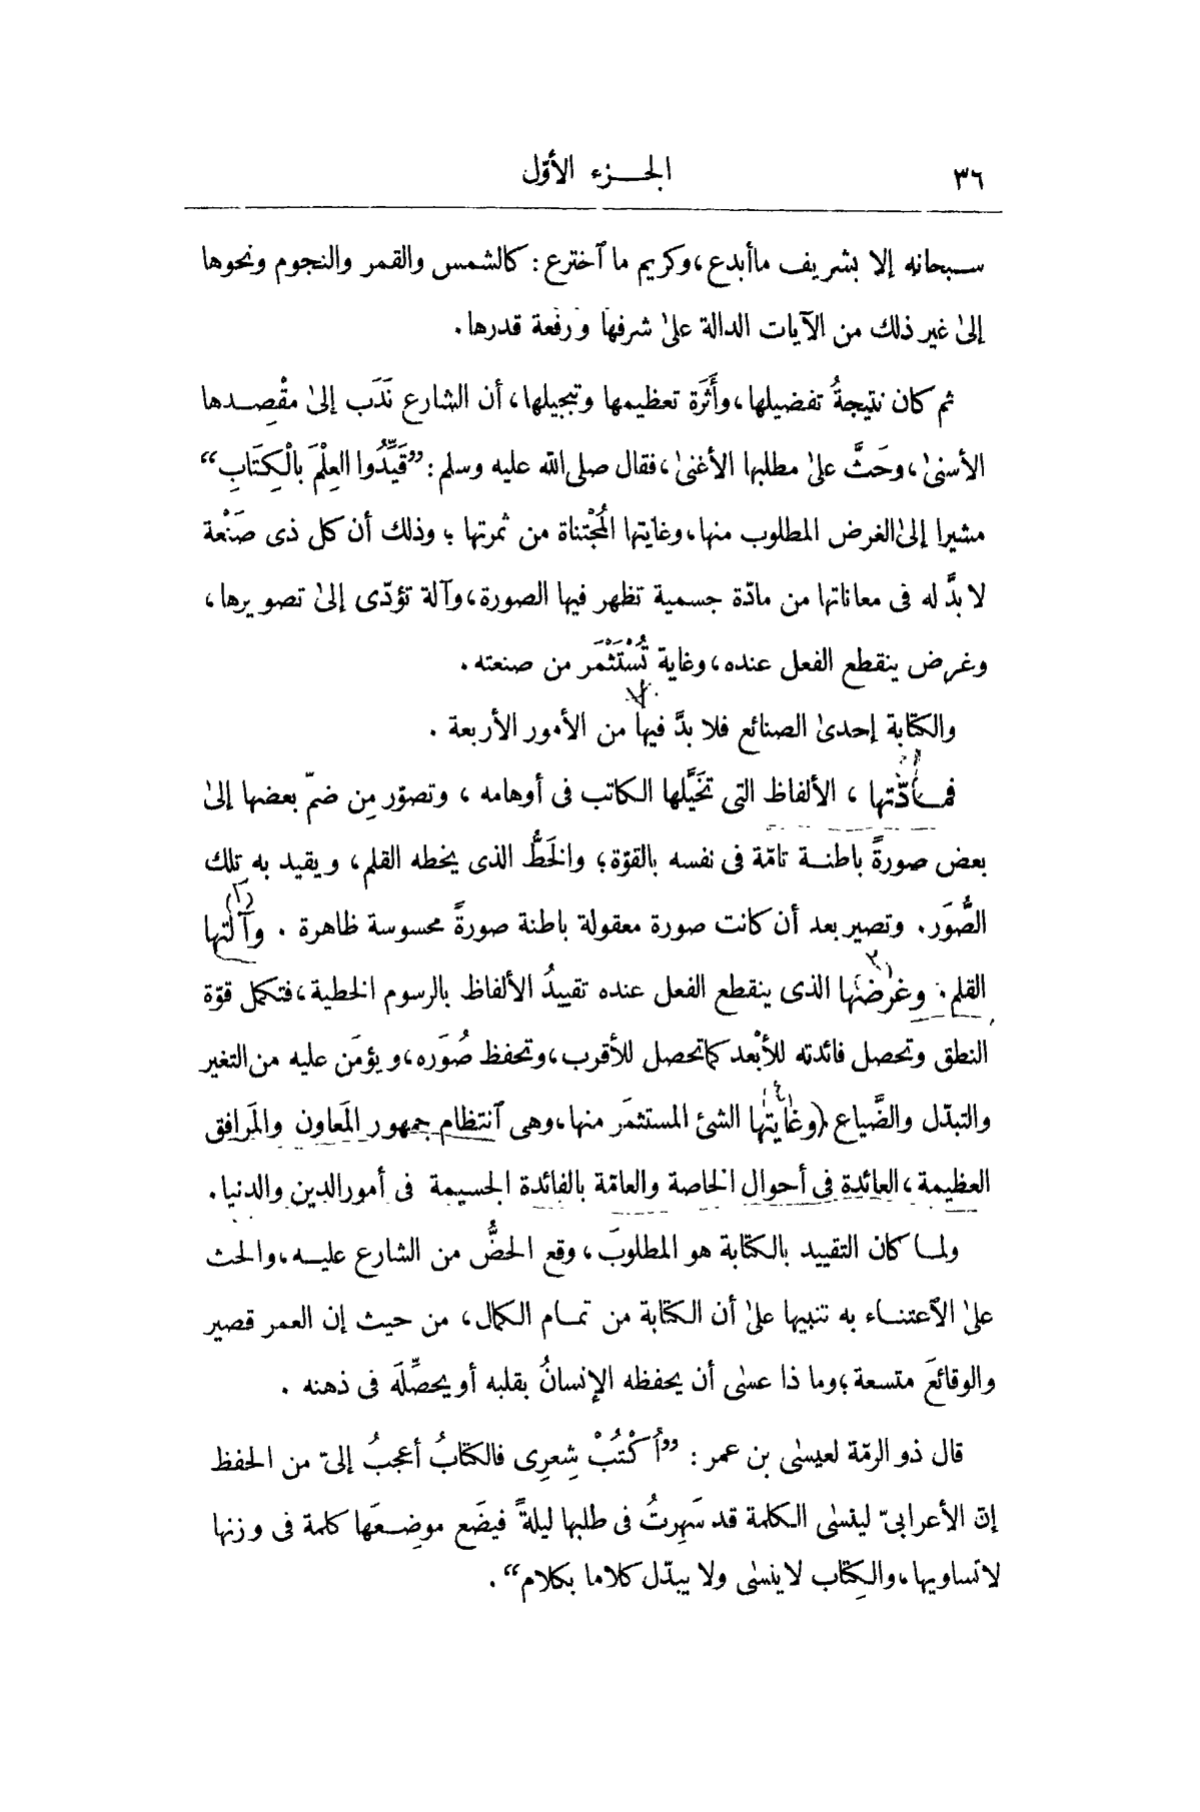 ٣٦ الجـزء الأوّل
سبحانه إلا بشريف ماأبدع، وكريم ما ٱخترع: كالشمس والقمر والنجوم ونحوها
إلىٰ غير ذلك من الآيات الدالة علىٰ شرفها ورفعة قدرها.
ثم كان نتيجةُ تفضيلها، وأَثَرَة تعظيمها وتبجيلها، أن الشارع نَدَب إلىٰ مقْصِدها
الأسنىٰ، وحَثَّ علىٰ مطلبها الأغنىٰ، فقال صلى الله عليه وسلم: ”قَيِّدُوا العِلْمَ بالْكِتَابِ“
مشيرا إلىٰ الغرض المطلوب منها، وغايتها الُمجْتناة من ثمرتها؛ وذلك أن كل ذى صَنْعة
لا بدَّ له فى معاناتها من مادّة جسمية تظهر فيها الصورة، وآلة تؤدّى إلىٰ تصويرها،
وغرض ينقطع الفعل عنده، وغاية تُسْتَثْمَر من صنعته.
والكتابة إحدىٰ الصنائع فلا بدَّ فيها من الأمور الأربعة.
فمـادّتها، الألفاظ التى تخَيَّلها الكاتب فى أوهامه، وتصوّر مِن ضمّ بعضها إلىٰ
بعض صورةً باطنـة تامّة فى نفسه بالقوّة؛ والخَطُّ الذى يخطه القلم، ويقيد به تلك
الصُّوَر. وتصير بعد أن كانت صورة معقولة باطنة صورةً محسوسة ظاهرة. وآلتها (٢)
القلم. وغرضها ٣ الذى ينقطع الفعل عنده تقييدُ الألفاظ بالرسوم الخطية، فتكمل قوّة
النطق وتحصل فائدته للأبْعد كما تحصل للأقرب، وتحفظ صُوَره، ويؤمَن عليه من التغير
والتبدّل والضَّياع. (وغايتها ٤ الشئ المستثمَر منها، وهى ٱنتظام جمهور المَعاون والمَرافق
العظيمة، العائدة فى أحوال الخاصة والعامّة بالفائدة الجسيمة فى أمور الدين والدنيا.
ولمـا كان التقييد بالكتابة هو المطلوبَ، وقع الحضُّ من الشارع عليـه، والحث
علىٰ الٱعتنـاء به تنبيها علىٰ أن الكتابة من تمـام الكمال، من حيث إن العمر قصير
والوقائعَ متسعة؛ وما ذا عسى أن يحفظه الإنسانُ بقلبه أو يحصِّلَه فى ذهنه.
قال ذو الرمّة لعيسى بن عمر: ”أُكْتُبْ شِعرِى فالكتابُ أعجبُ إلىّ من الحفظ
إنّ الأعرابىّ لينسٰى الكلمة قد سَهِرتُ فى طلبها ليلةً فيضَع موضِعَها كلمة فى وزنها
لا تساويها، والكِتاب لا ينسٰى ولا يبدّل كلاما بكلام“.